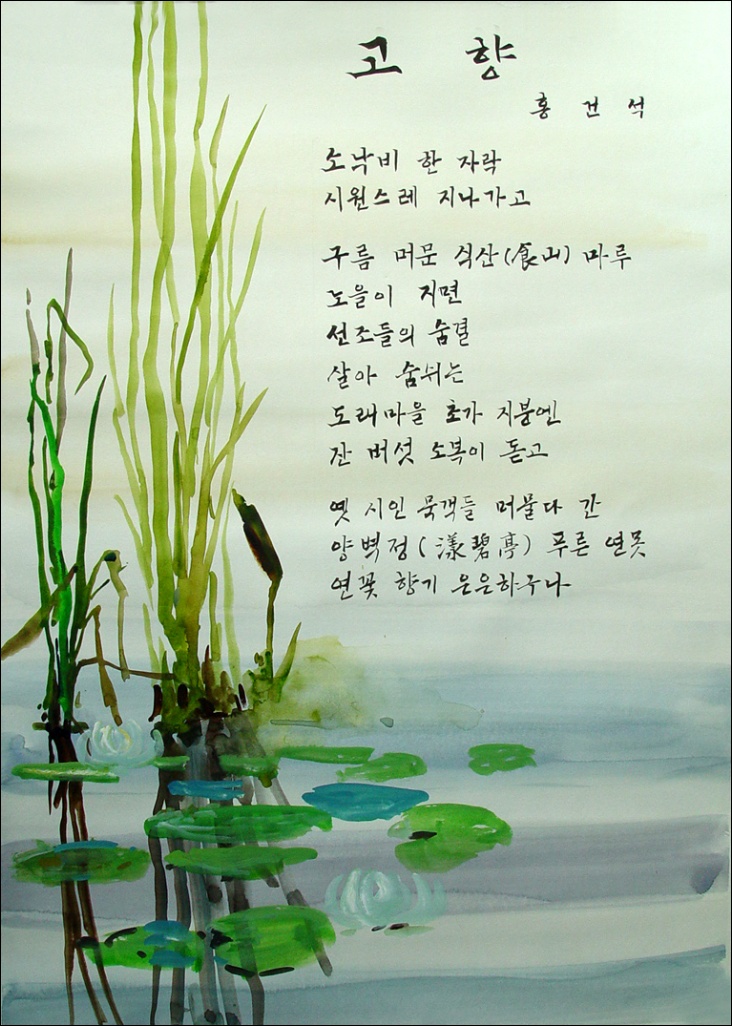 고 향
홍 건 석
소낙비 한 자락
시원스레 지나가고
구름 머문 식산(食山) 마루
노을이 지면
선조들의 숨결
살아 숨쉬는
도래마을 초가 지붕엔
갓 버섯 소복이 돋고
옛 시인 묵객들 머물다 간
양벽정(漾碧亭) 푸른 연못
연꽃 향기 은은하구나